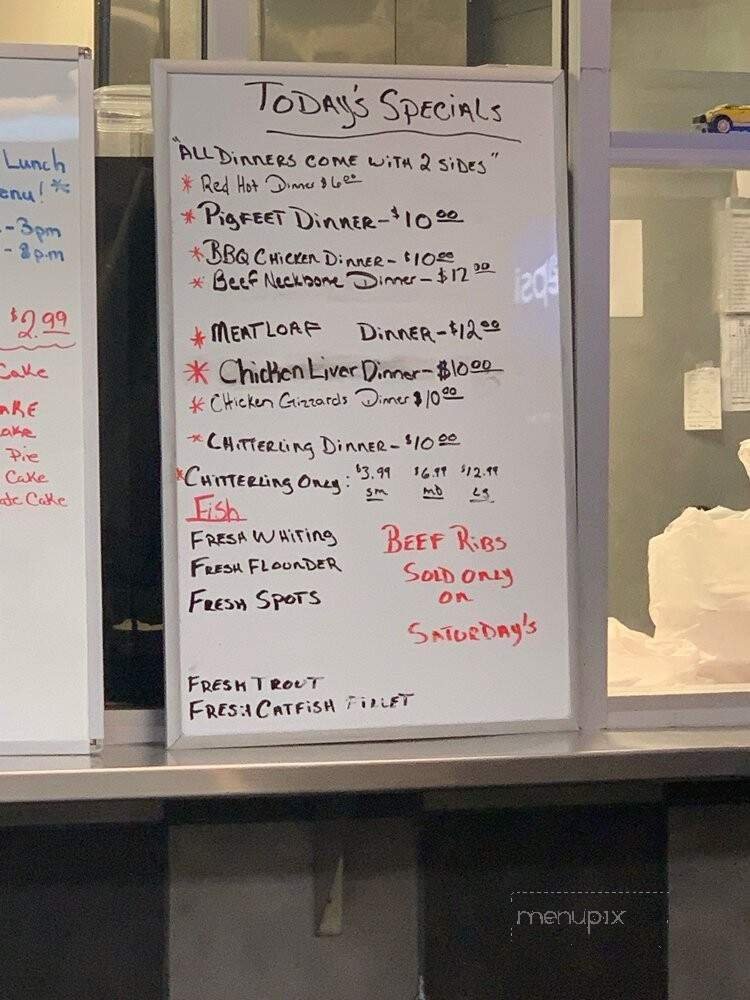 Lunch
enu!
- 3pm
- 8p.m
$2.99
Cake
ake
Pie
Cake
Cake
TODAY'S SPECIALS
"ALL DINNERS COME WITH 2 SIDES"
* Red Hot Dinner $6.00
* PIGFEET DINNER - $10.00
* BBQ CHICKEN DINNER - $10.00
* Beef Neckbone Dinner - $12.00
* MEATLOAF DINNER - $12.00
* Chicken Liver Dinner - $10.00
* Chicken Gizzards Dinner $10.00
* CHITTERLING DINNER - $10.00
* CHITTERLING ONLY: $3.99 $6.99 $12.99
sm md Lg
Fish
FRESH WHITING
FRESH FLOUNDER
FRESH SPOTS
BEEF RIBS
SOLD ONLY
ON
SATURDAY'S
FRESH TROUT
FRESH CATFISH FILLET
epsi
menupix